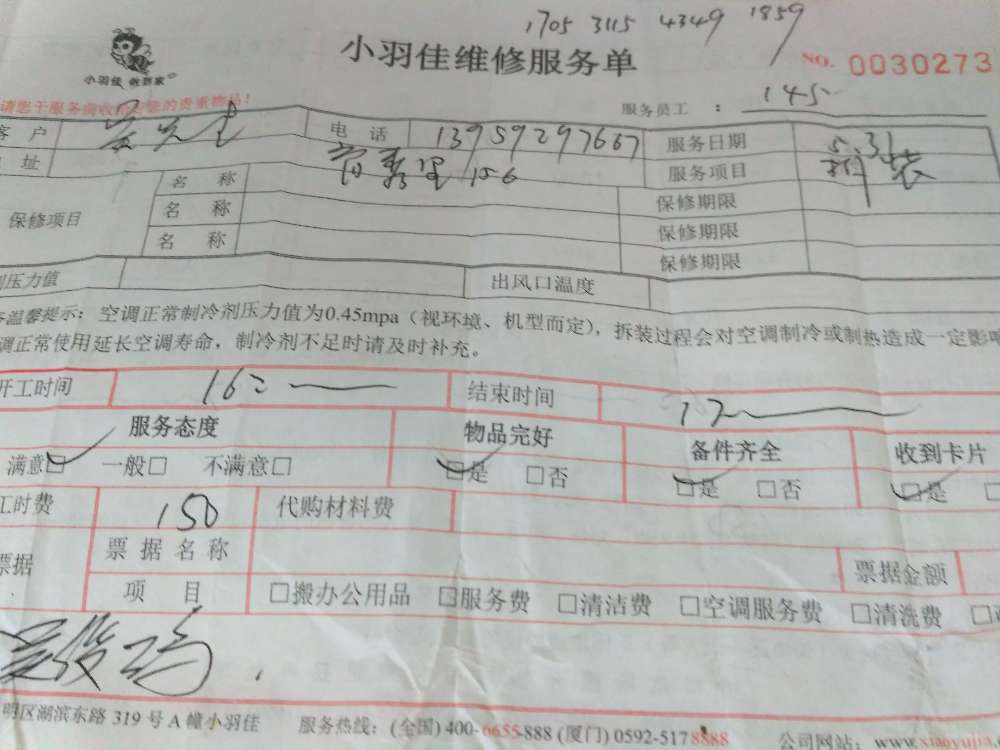 1705 3115 4349 1859
小羽佳维修服务单
NO. 0030273
小羽佳 做到家
请您于服务前收好您的贵重物品!
服务员工： 145
客户 吴先生 电话 13959297667 服务日期 5.31
址 156 服务项目 拆装
保修项目 名称 保修期限
名称 保修期限
名称 保修期限
剂压力值 出风口温度
温馨提示：空调正常制冷剂压力值为0.45mpa（视环境、机型而定），拆装过程会对空调制冷或制热造成一定影响
调正常使用延长空调寿命，制冷剂不足时请及时补充。
开工时间 16: 结束时间 17
服务态度 物品完好 备件齐全 收到卡片
满意☑ 一般□ 不满意□ ☑是 □否 ☑是 □否 ☑是
工时费 150 代购材料费
票据 票据名称 票据金额
项目 □搬办公用品 □服务费 □清洁费 □空调服务费 □清洗费
明区湖滨东路 319 号 A 幢小羽佳 服务热线：(全国) 400-6655-888 (厦门) 0592-5178888 公司网站：www.xiaoyujia